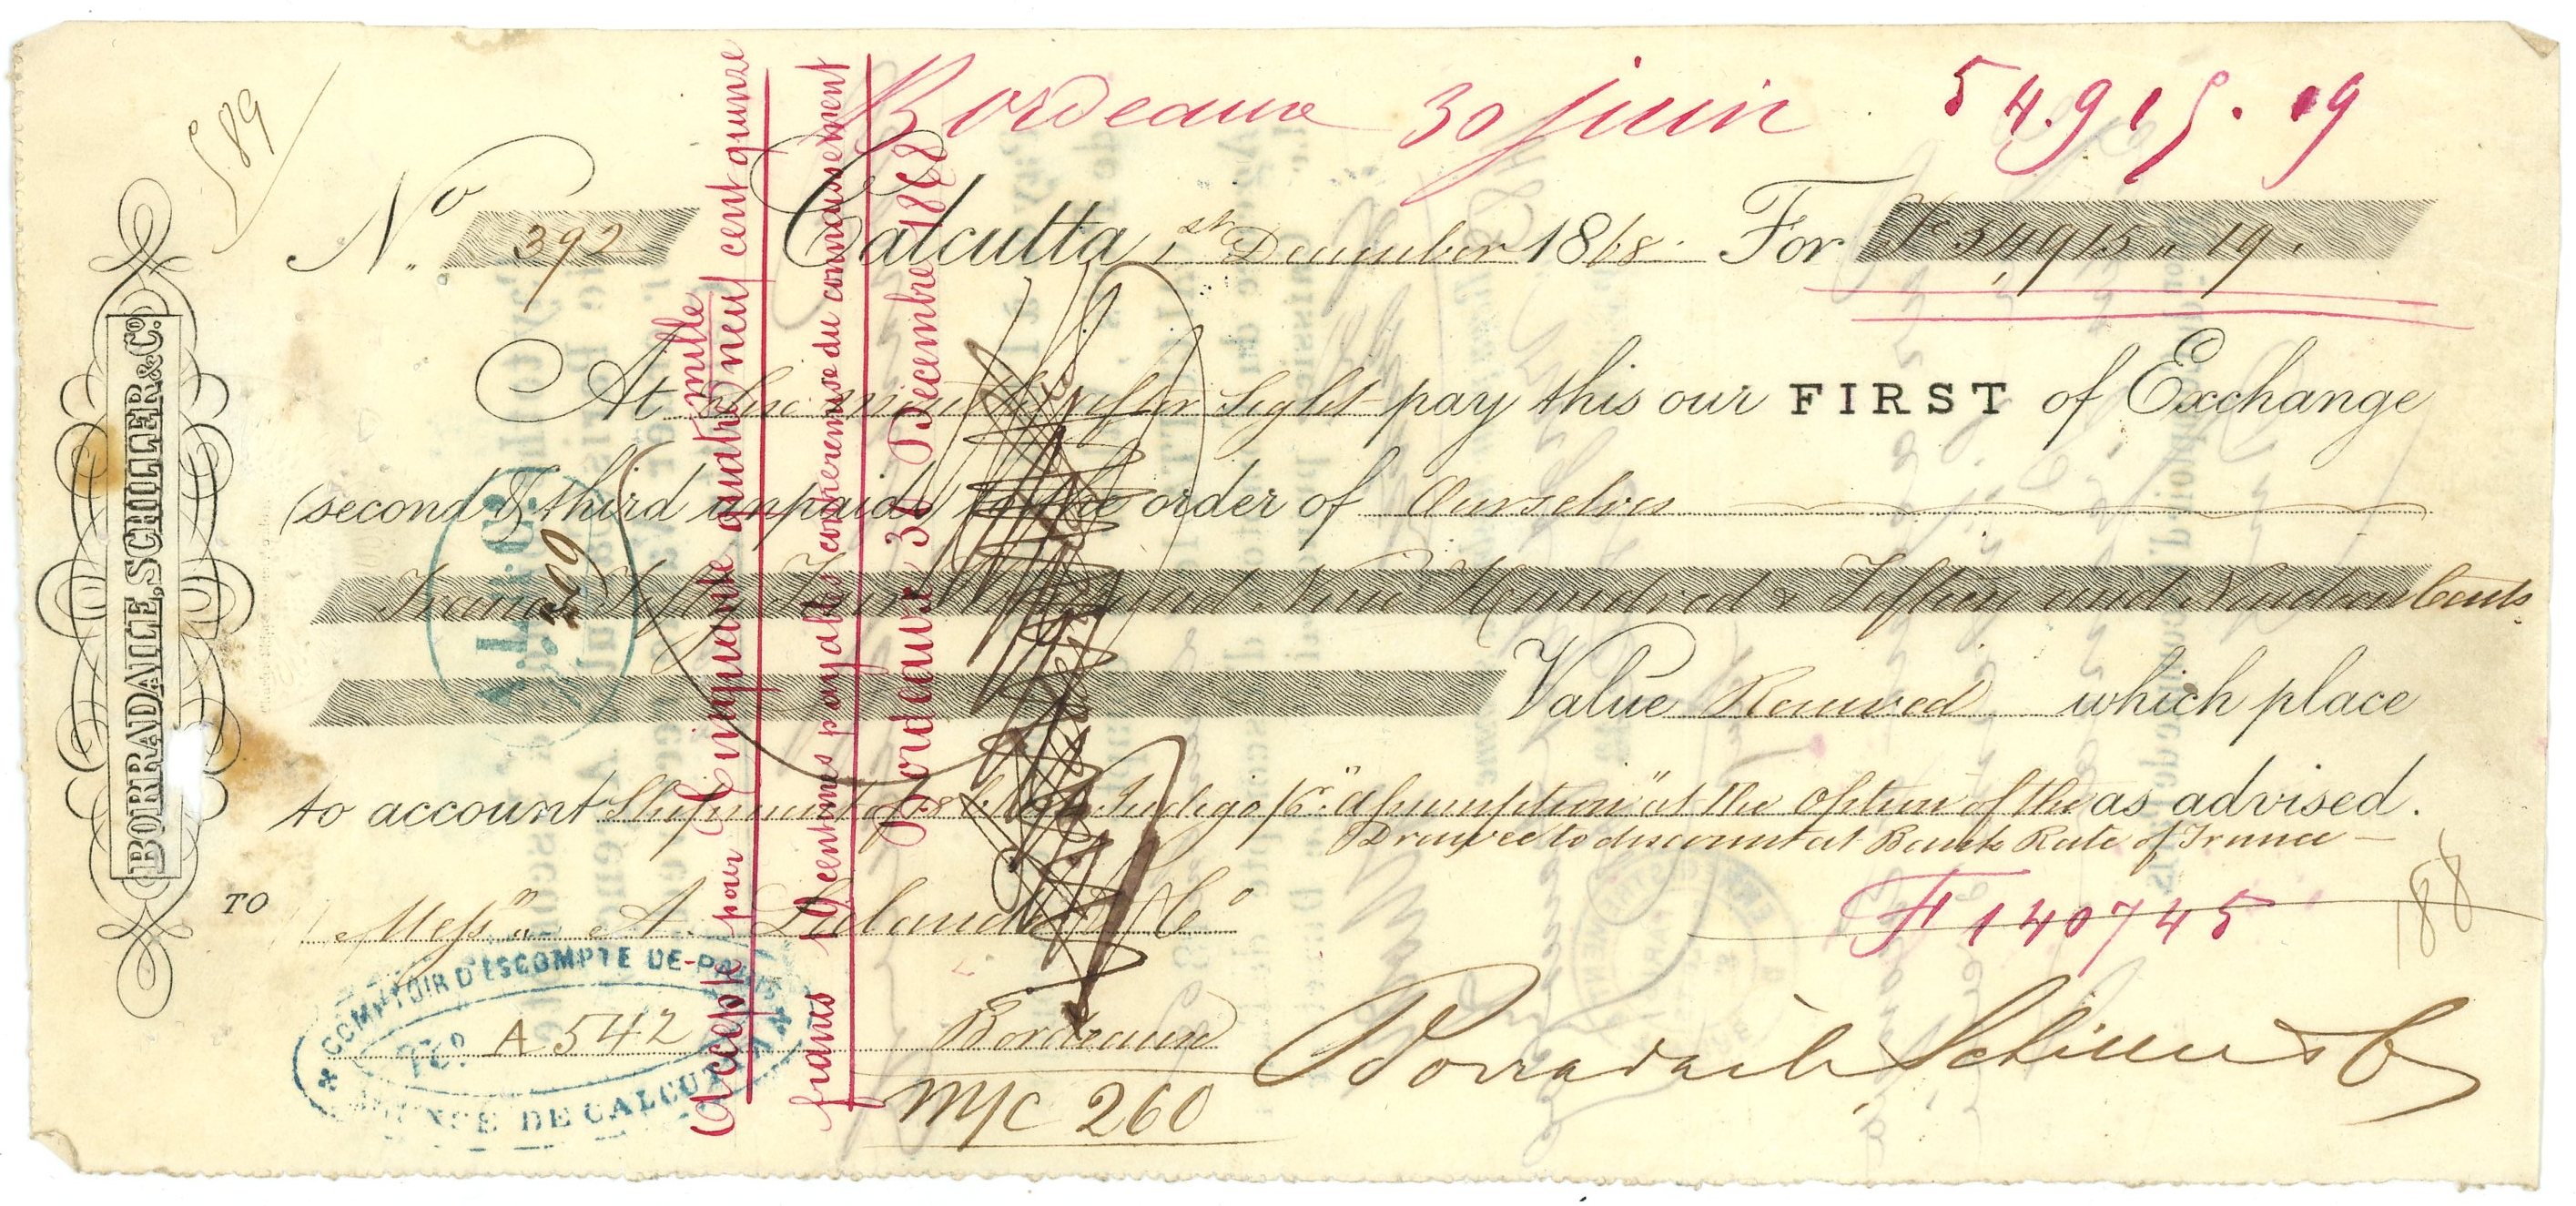 589
Bordeaux 30 juin 54.915.19
No. 392 Calcutta, 1st December 1868. For Fc 54,915 " 19.
At One month after Sight pay this our FIRST of Exchange
(second & third unpaid) to the order of Ourselves
Francs Fifty Four Thousand Nine Hundred & Fifteen and Nineteen Cents
Value Received which place
to account Shipment of Indigo p "Assumption" at the option of the as advised.
Drawee to discount at Bank Rate of France —
TO Messrs A. Lalande & Co
Bordeaux
F 140745
188
Borradaile Schiller & Co
M/C 260
BORRADAILE, SCHILLER & CO.
COMPTOIR D'ESCOMPTE DE PARIS
No A 542
AGENCE DE CALCUTTA
Accepté pour Cinquante quatre mille neuf cent quinze
francs 19 centimes payables contre remise du connaissement
Bordeaux 30 Decembre 1868